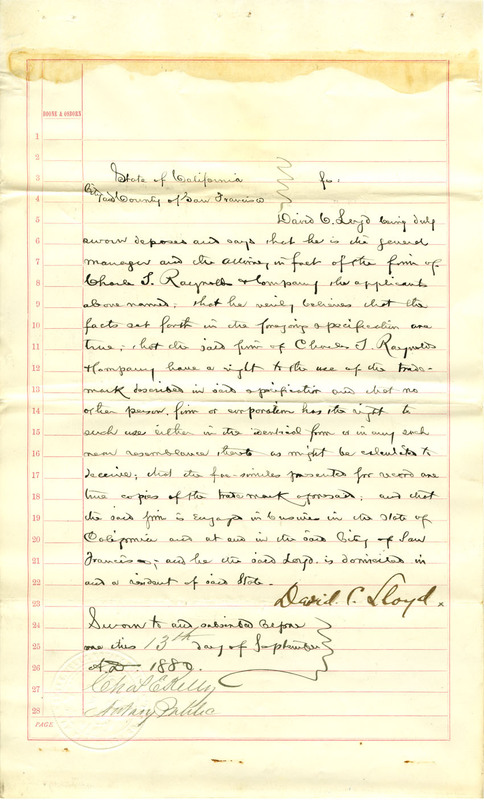 BOONE & OSBORN
1
2
3 State of California } ss:
4 City and County of San Francisco
5 David C. Lloyd being duly
6 sworn deposes and says that he is the general
7 manager and the attorney in fact of the firm of
8 Charles T. Raynolds & Company the applicants
9 above named; that he verily believes that the
10 facts set forth in the foregoing specification are
11 true; that the said firm of Charles T. Raynolds
12 & Company have a right to the use of the trade-
13 mark described in said specification and that no
14 other person, firm or corporation has the right to
15 such use either in the identical form or in any such
16 near resemblance thereto as might be calculated to
17 deceive; that the fac-similes presented for record are
18 true copies of the trade mark aforesaid; and that
19 the said firm is engaged in business in the State of
20 California and at and in the said City of San
21 Francisco; and he the said Lloyd is domiciled in
22 and a resident of said State.
23 David. C. Lloyd.
24 Sworn to and subscribed before
25 me this 13th day of September
26 A.D. 1880.
27 Chas E Kelly
28 Notary Public
PAGE